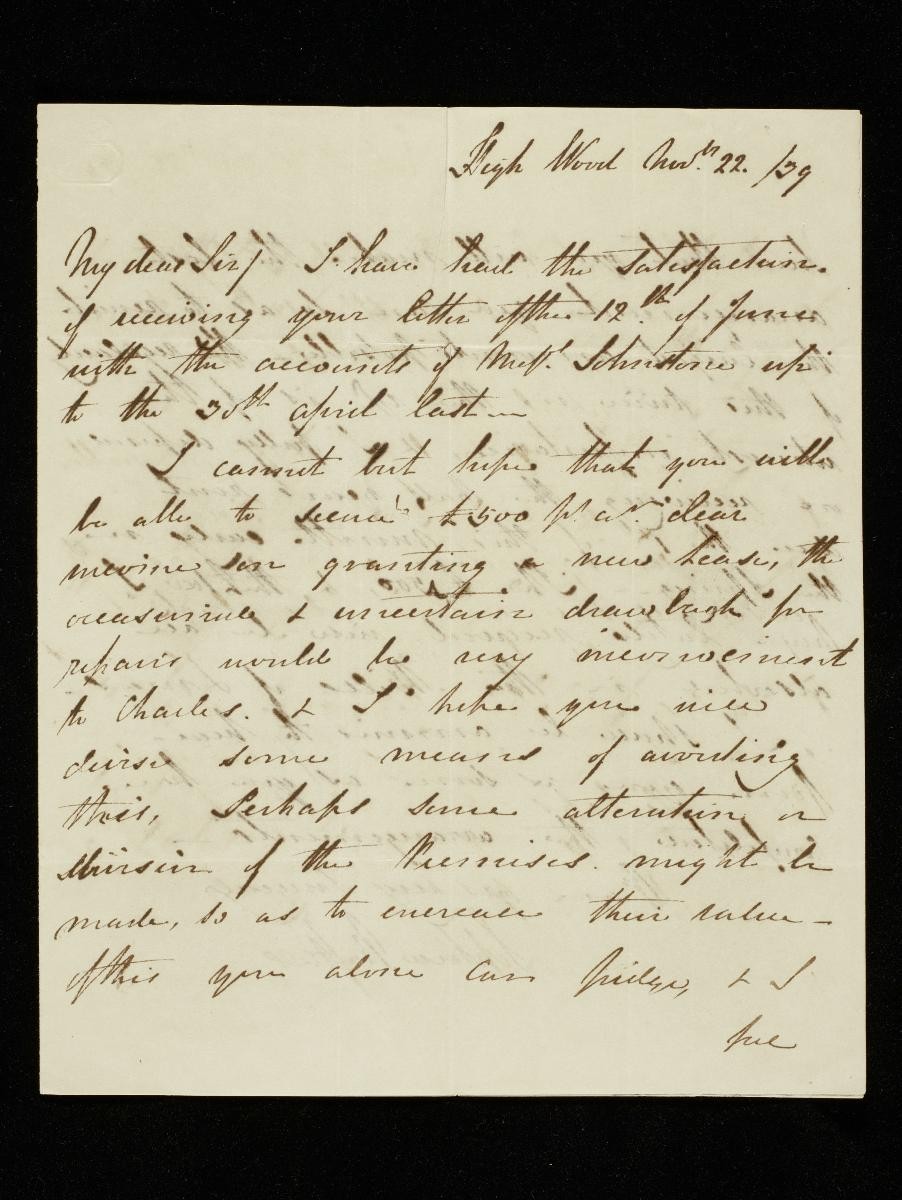 High Wood Novbr 22. /39
My dear Sir/ I have had the satisfaction
of receiving your letter of the 12th of June
with the accounts of Messrs Johnstone up
to the 30th april last —
I cannot but hope that you will
be able to secure £500 pr an. clear
income on granting a new Lease, the
occasional & uncertain drawback for
repairs would be very inconvenient
to Charles. & I hope you will
devise some means of avoiding
this, Perhaps some alteration or
division of the Premises might be
made, so as to encrease their value —
Of this you alone can judge, & I
feel